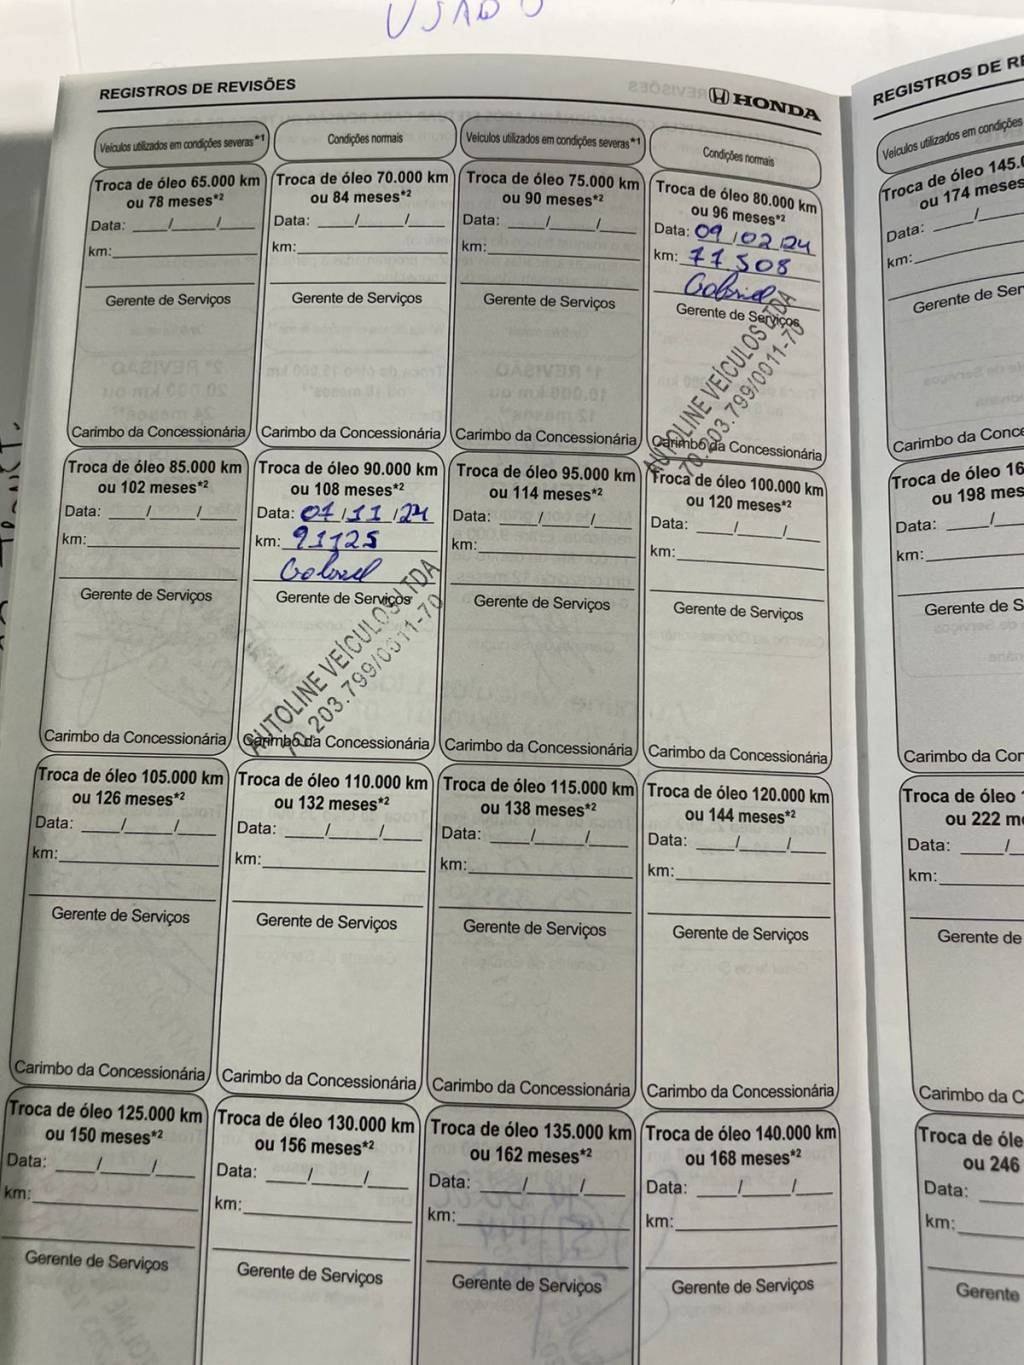 USADO
REGISTROS DE REVISÕES
HONDA
Veículos utilizados em condições severas*1
Condições normais
Veículos utilizados em condições severas*1
Condições normais
Troca de óleo 65.000 km
ou 78 meses*2
Data: ___/___/___
km:
Gerente de Serviços
Carimbo da Concessionária
Troca de óleo 70.000 km
ou 84 meses*2
Data: ___/___/___
km:
Gerente de Serviços
Carimbo da Concessionária
Troca de óleo 75.000 km
ou 90 meses*2
Data: ___/___/___
km:
Gerente de Serviços
Carimbo da Concessionária
Troca de óleo 80.000 km
ou 96 meses*2
Data: 09/02/24
km: 77508
Gabriel
Gerente de Serviços
AUTOLINE VEÍCULOS LTDA
70.203.799/0011-70
Carimbo da Concessionária
Troca de óleo 85.000 km
ou 102 meses*2
Data: ___/___/___
km:
Gerente de Serviços
Carimbo da Concessionária
Troca de óleo 90.000 km
ou 108 meses*2
Data: 07/11/24
km: 91125
Gabriel
Gerente de Serviços
AUTOLINE VEÍCULOS LTDA
70.203.799/0011-70
Carimbo da Concessionária
Troca de óleo 95.000 km
ou 114 meses*2
Data: ___/___/___
km:
Gerente de Serviços
Carimbo da Concessionária
Troca de óleo 100.000 km
ou 120 meses*2
Data: ___/___/___
km:
Gerente de Serviços
Carimbo da Concessionária
Troca de óleo 105.000 km
ou 126 meses*2
Data: ___/___/___
km:
Gerente de Serviços
Carimbo da Concessionária
Troca de óleo 110.000 km
ou 132 meses*2
Data: ___/___/___
km:
Gerente de Serviços
Carimbo da Concessionária
Troca de óleo 115.000 km
ou 138 meses*2
Data: ___/___/___
km:
Gerente de Serviços
Carimbo da Concessionária
Troca de óleo 120.000 km
ou 144 meses*2
Data: ___/___/___
km:
Gerente de Serviços
Carimbo da Concessionária
Troca de óleo 125.000 km
ou 150 meses*2
Data: ___/___/___
km:
Gerente de Serviços
Troca de óleo 130.000 km
ou 156 meses*2
Data: ___/___/___
km:
Gerente de Serviços
Troca de óleo 135.000 km
ou 162 meses*2
Data: ___/___/___
km:
Gerente de Serviços
Troca de óleo 140.000 km
ou 168 meses*2
Data: ___/___/___
km:
Gerente de Serviços
REGISTROS DE RE
Veículos utilizados em condições
Troca de óleo 145.0
ou 174 meses
Data: ___/
km:
Gerente de Ser
Carimbo da Conce
Troca de óleo 16
ou 198 mes
Data: ___/
km:
Gerente de S
Carimbo da Con
Troca de óleo
ou 222 m
Data: ___/
km:
Gerente de
Carimbo da C
Troca de óle
ou 246
Data:
km:
Gerente